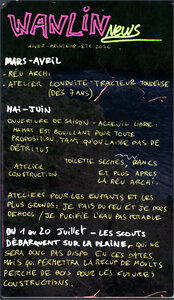 WANLIN NEWS
HIVER-PRINTEMP-ÉTÉ 2026
MARS-AVRIL
- RÉU ARCHI
- ATELIER CONDUITE-TRACTEUR TONDEUSE
(DÈS 7 ANS)
MAI-JUIN
OUVERTURE DE SAISON - ACCEUIL LIBRE.
HAMAS EST BOUILLANT POUR TOUTE
PROPOSITION, TANT QU'ON LAISSE PAS DE
DÉTRITUS
ATELIER
CONSTRUCTION
TOILETTE SECHES, BANCS
ET PLUS APRÈS
LA RÉU ARCHI.
ATELIERS POUR LES ENFANTS ET LES
PLUS GRANDS: JE FAIS DU FEU ET JE DORS
DEHORS / JE PURIFIE L'EAU PAS POTABLE
DU 1 AU 20 JUILLET - LES SCOUTS
DÉBARQUENT SUR LA PLAINE, QUI NE
SERA DONC PAS DISPO EN CES DATES
MAIS QUI PERMETTRA LA RÉCUP DE MOULTS
PERCHE DE BOIS POUR LES FUTURES
CONSTRUCTIONS.